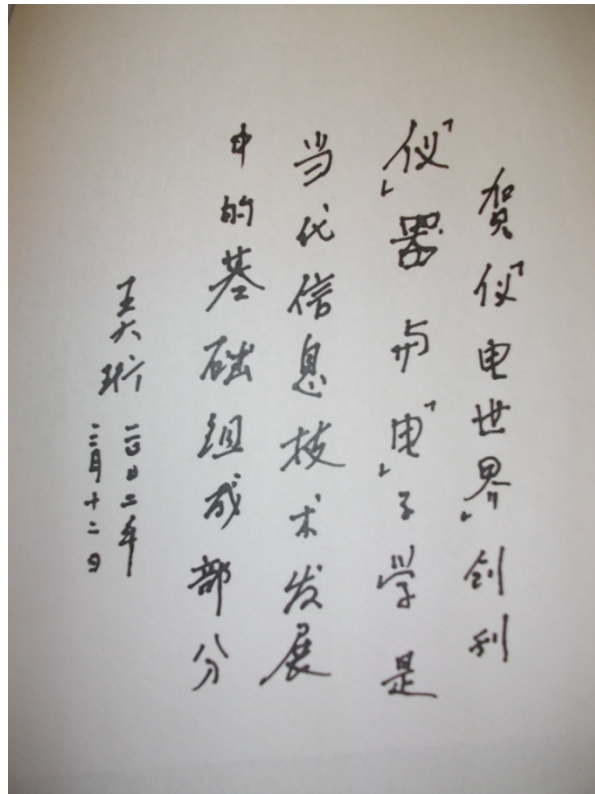 贺「仪电世界」创刊
「仪」器与「电」子学是
当代信息技术发展
中的基础组成部分
王大珩
二〇〇二年
二月十二日